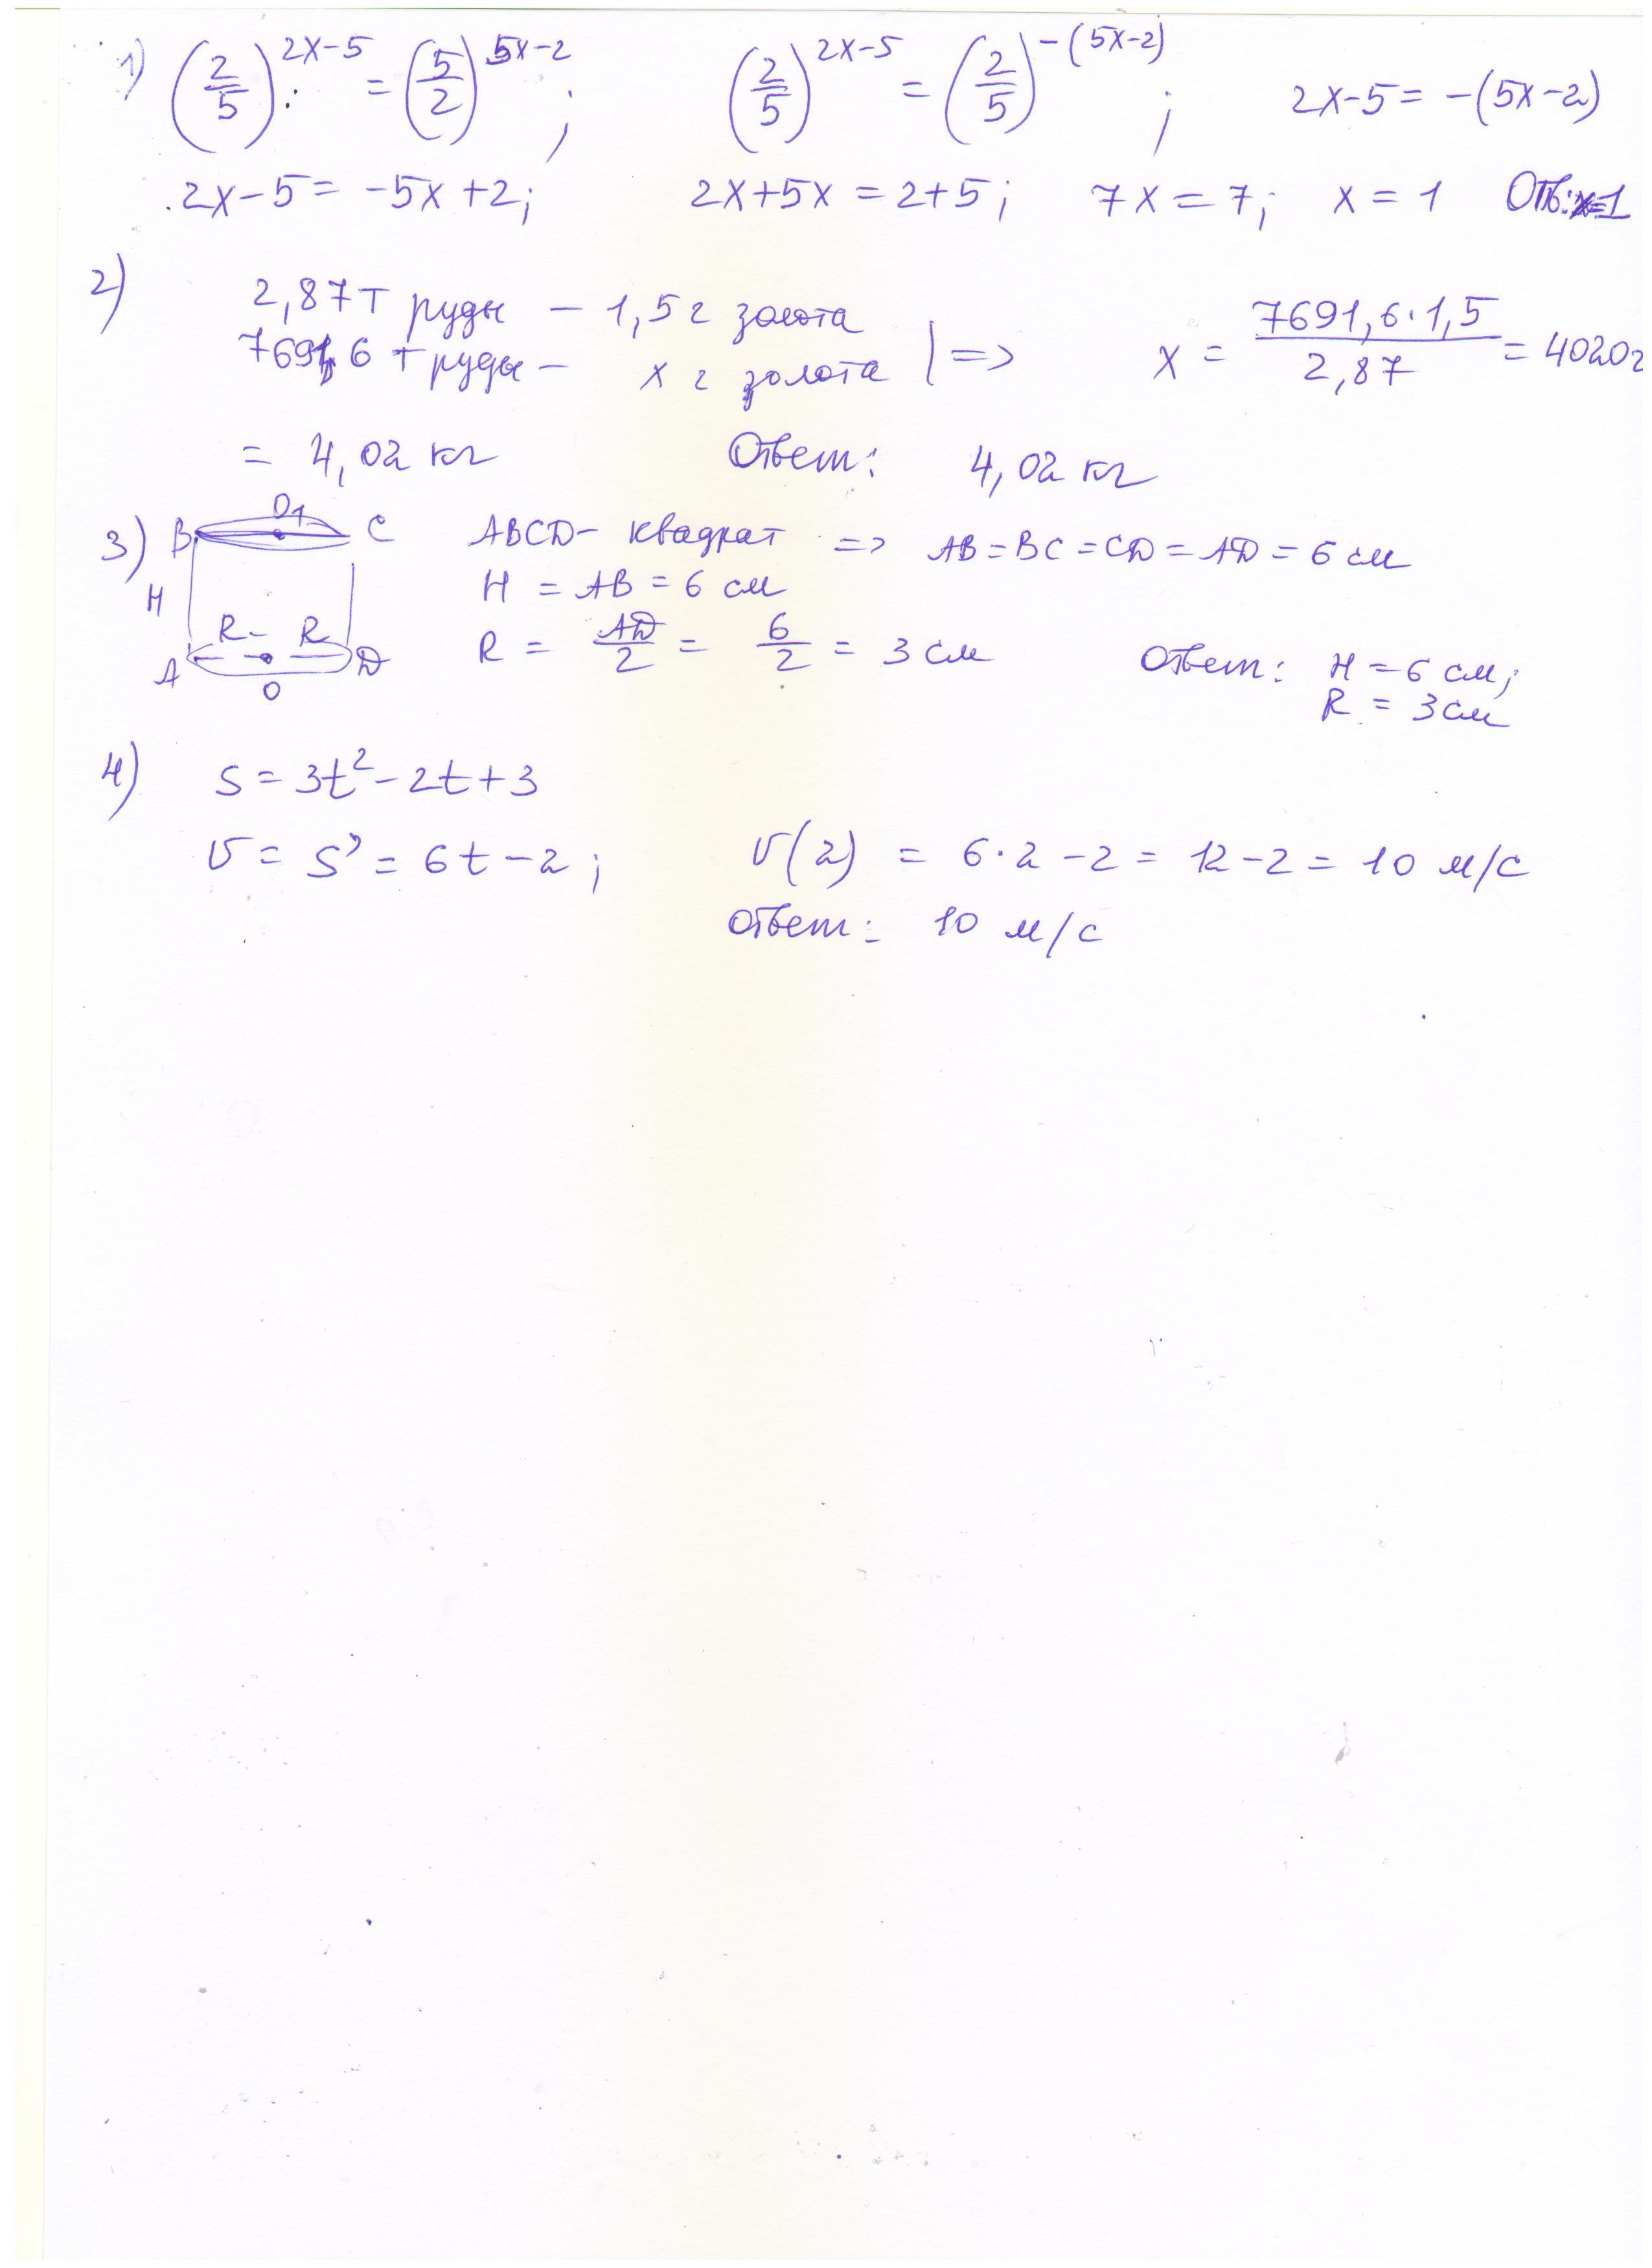 1) (2/5)^(2x-5) = (5/2)^(5x-2) ; (2/5)^(2x-5) = (2/5)^(-(5x-2)) ; 2x-5 = -(5x-2)
2x-5 = -5x+2; 2x+5x = 2+5; 7x = 7; x = 1 Отв: x=1
2) 2,87 т руды - 1,5 г золота
7691,6 т руды - x г золота | => x = (7691,6·1,5)/(2,87) = 4020г
= 4,02 кг Ответ: 4,02 кг
3) B O1 C ABCD - квадрат => AB = BC = CD = AD = 6 см
H H = AB = 6 см
R R R = AD/2 = 6/2 = 3 см Ответ: H = 6 см;
A O D R = 3 см
4) S = 3t² - 2t + 3
v = S' = 6t - 2; v(2) = 6·2 - 2 = 12 - 2 = 10 м/с
Ответ: 10 м/с